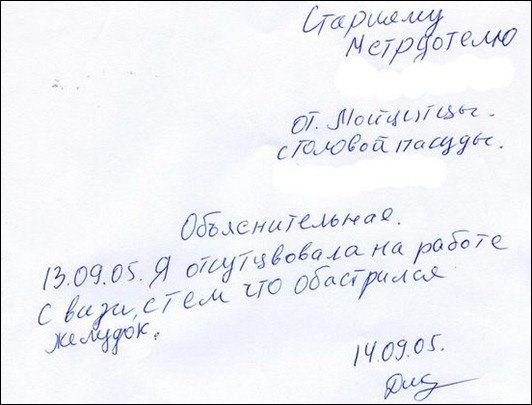 Старшему
Метрдотелю
от. Мойцитцы.
столовой пасуды.
Объяснительная.
13.09.05. Я отсутцвовала на работе
с визи, с тем что обастрился
желудок.
14.09.05.